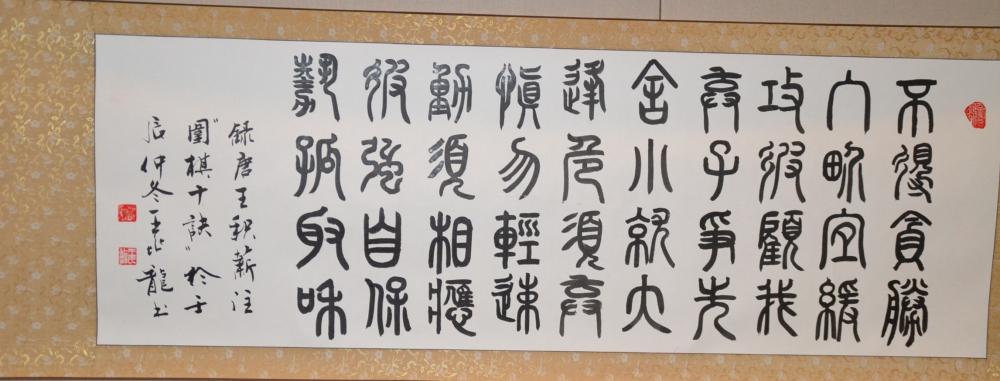 不得貪勝
入界宜緩
攻彼顧我
棄子爭先
舍小就大
逢危須棄
慎勿輕速
動須相應
彼強自保
勢孤取和
錄唐王積薪注
"圍棋十訣"於壬
辰仲冬王
龍書